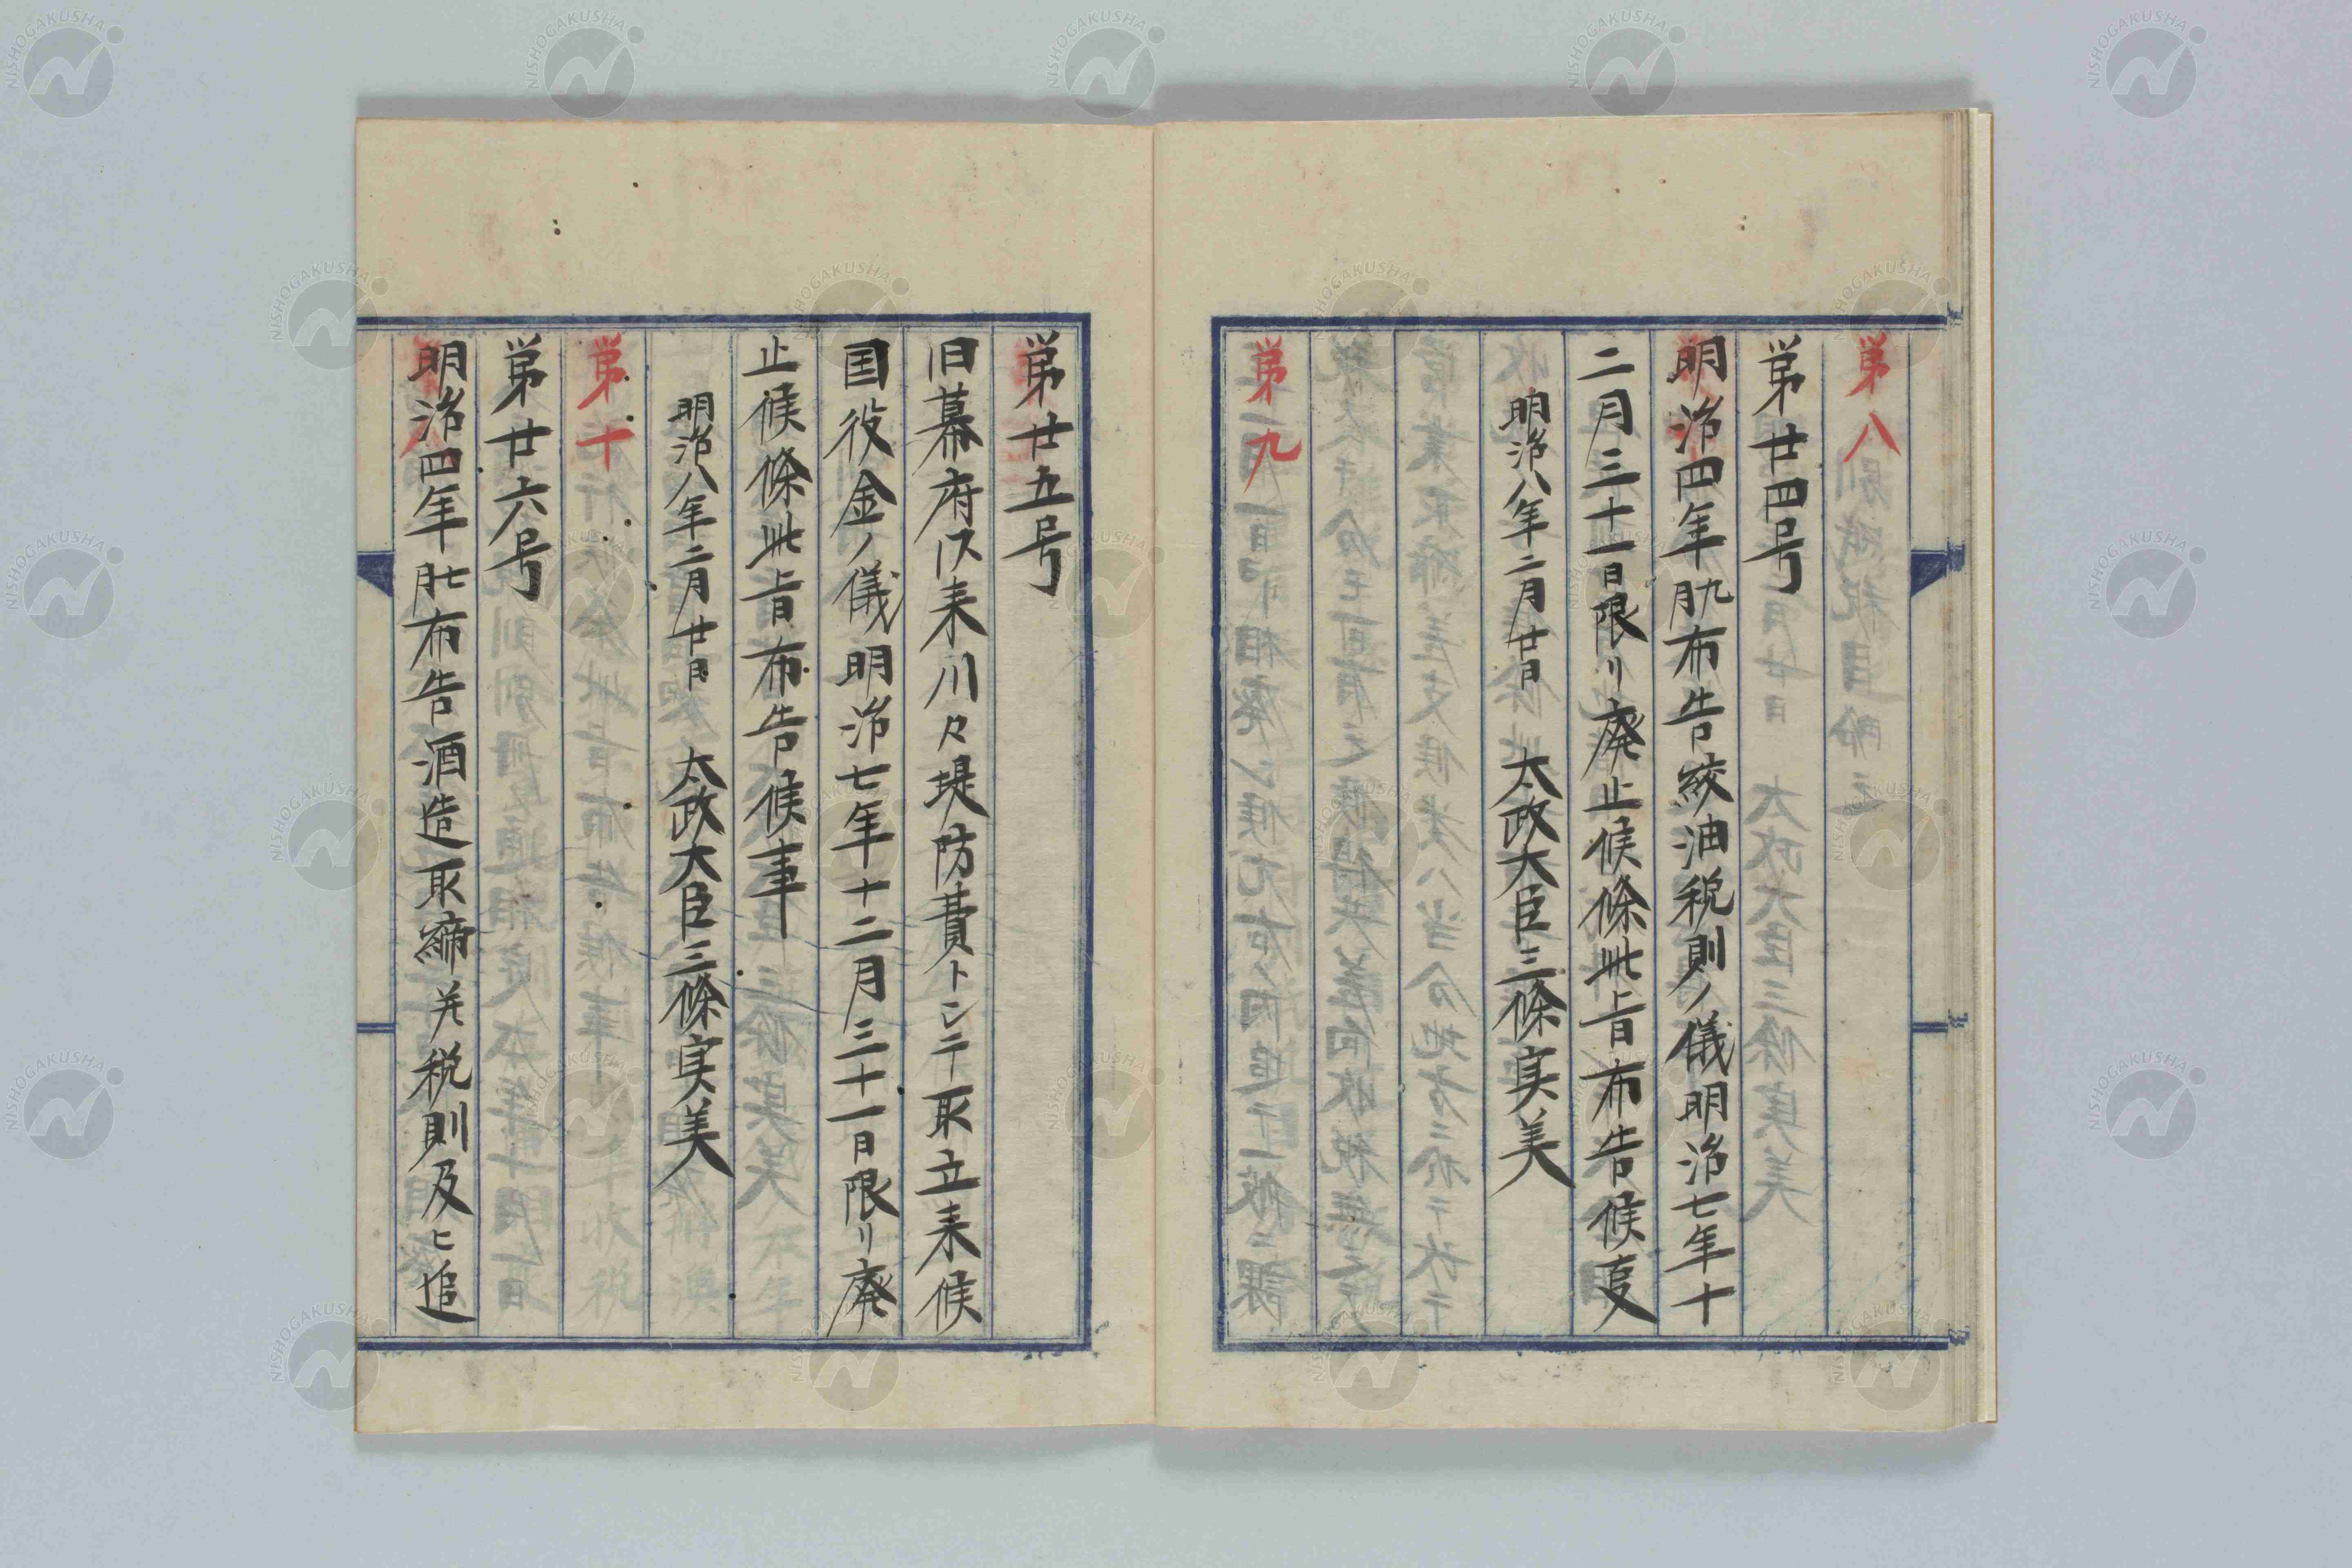 第八
第廿四号
明治四年九月布告絞油税則ノ儀明治七年十
二月三十一日限リ廃止候條此旨布告候叓
明治八年二月廿日　太政大臣三條実美
第九
第廿五号
旧幕府以来川々堤防費トシテ取立来候
国役金ノ儀明治七年十二月三十一日限リ廃
止候條此旨布告候事
明治八年二月廿日　太政大臣三條実美
第十
第廿六号
明治四年七月布告酒造取締幷税則及ヒ追
NISHOGAKUSHA